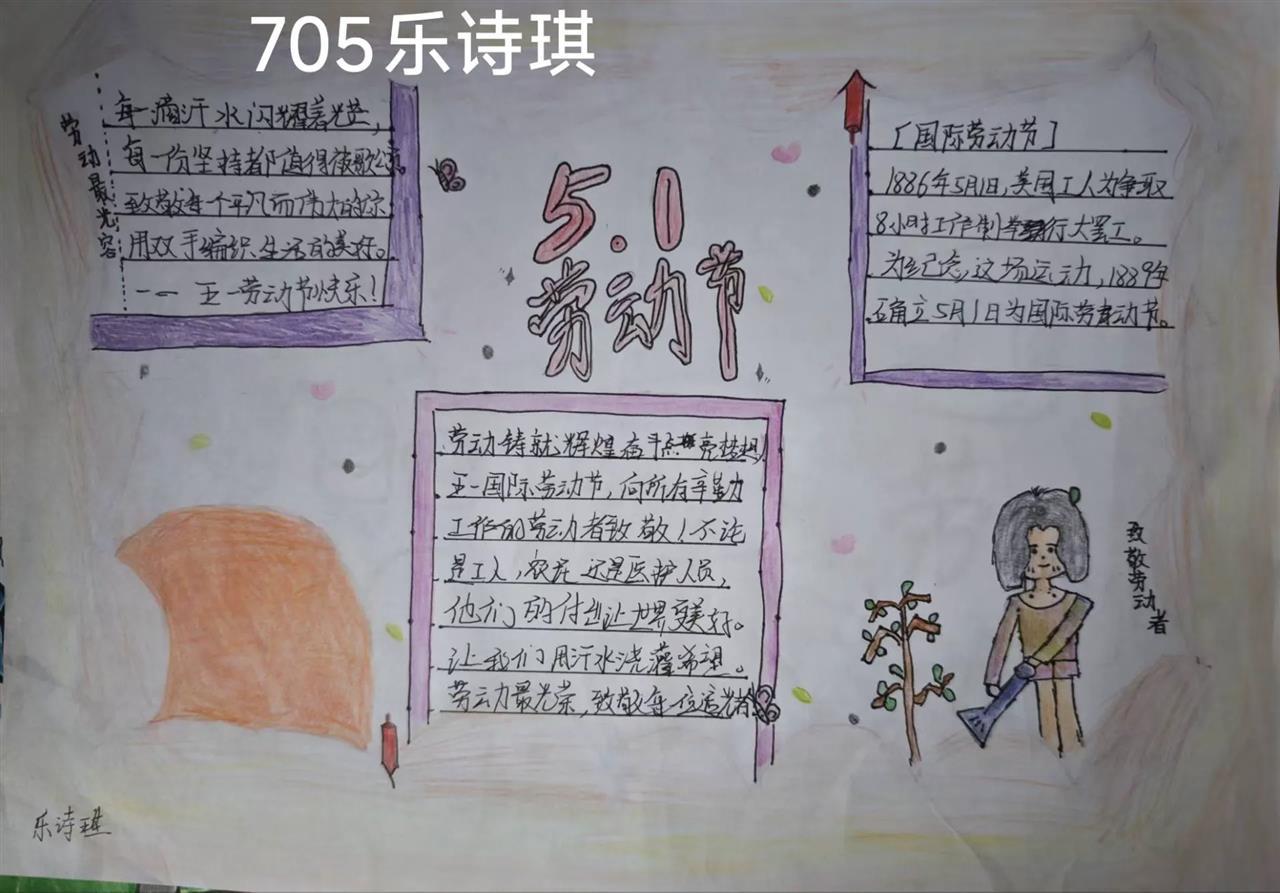 705乐诗琪
劳动最光容
每一滴汗水闪耀着光芒，
每一份坚持都值得被歌颂。
致敬每个平凡而伟大的你
用双手编织生活的美好。
一一 五一劳动节快乐！
5.1
劳动节
［国际劳动节］
1886年5月1日，美国工人为争取
8小时工作制举行大罢工。
为纪念这场运动，1889年
确立5月1日为国际劳动节。
劳动铸就辉煌 点亮梦想
五一国际劳动节，向所有辛勤
工作的劳动者致敬！不论
是工人，农民 还是医护人员，
他们的付出让世界更美好。
让我们用汗水浇灌希望。
劳动最光荣，致敬每一位追光者
致敬劳动者
乐诗琪